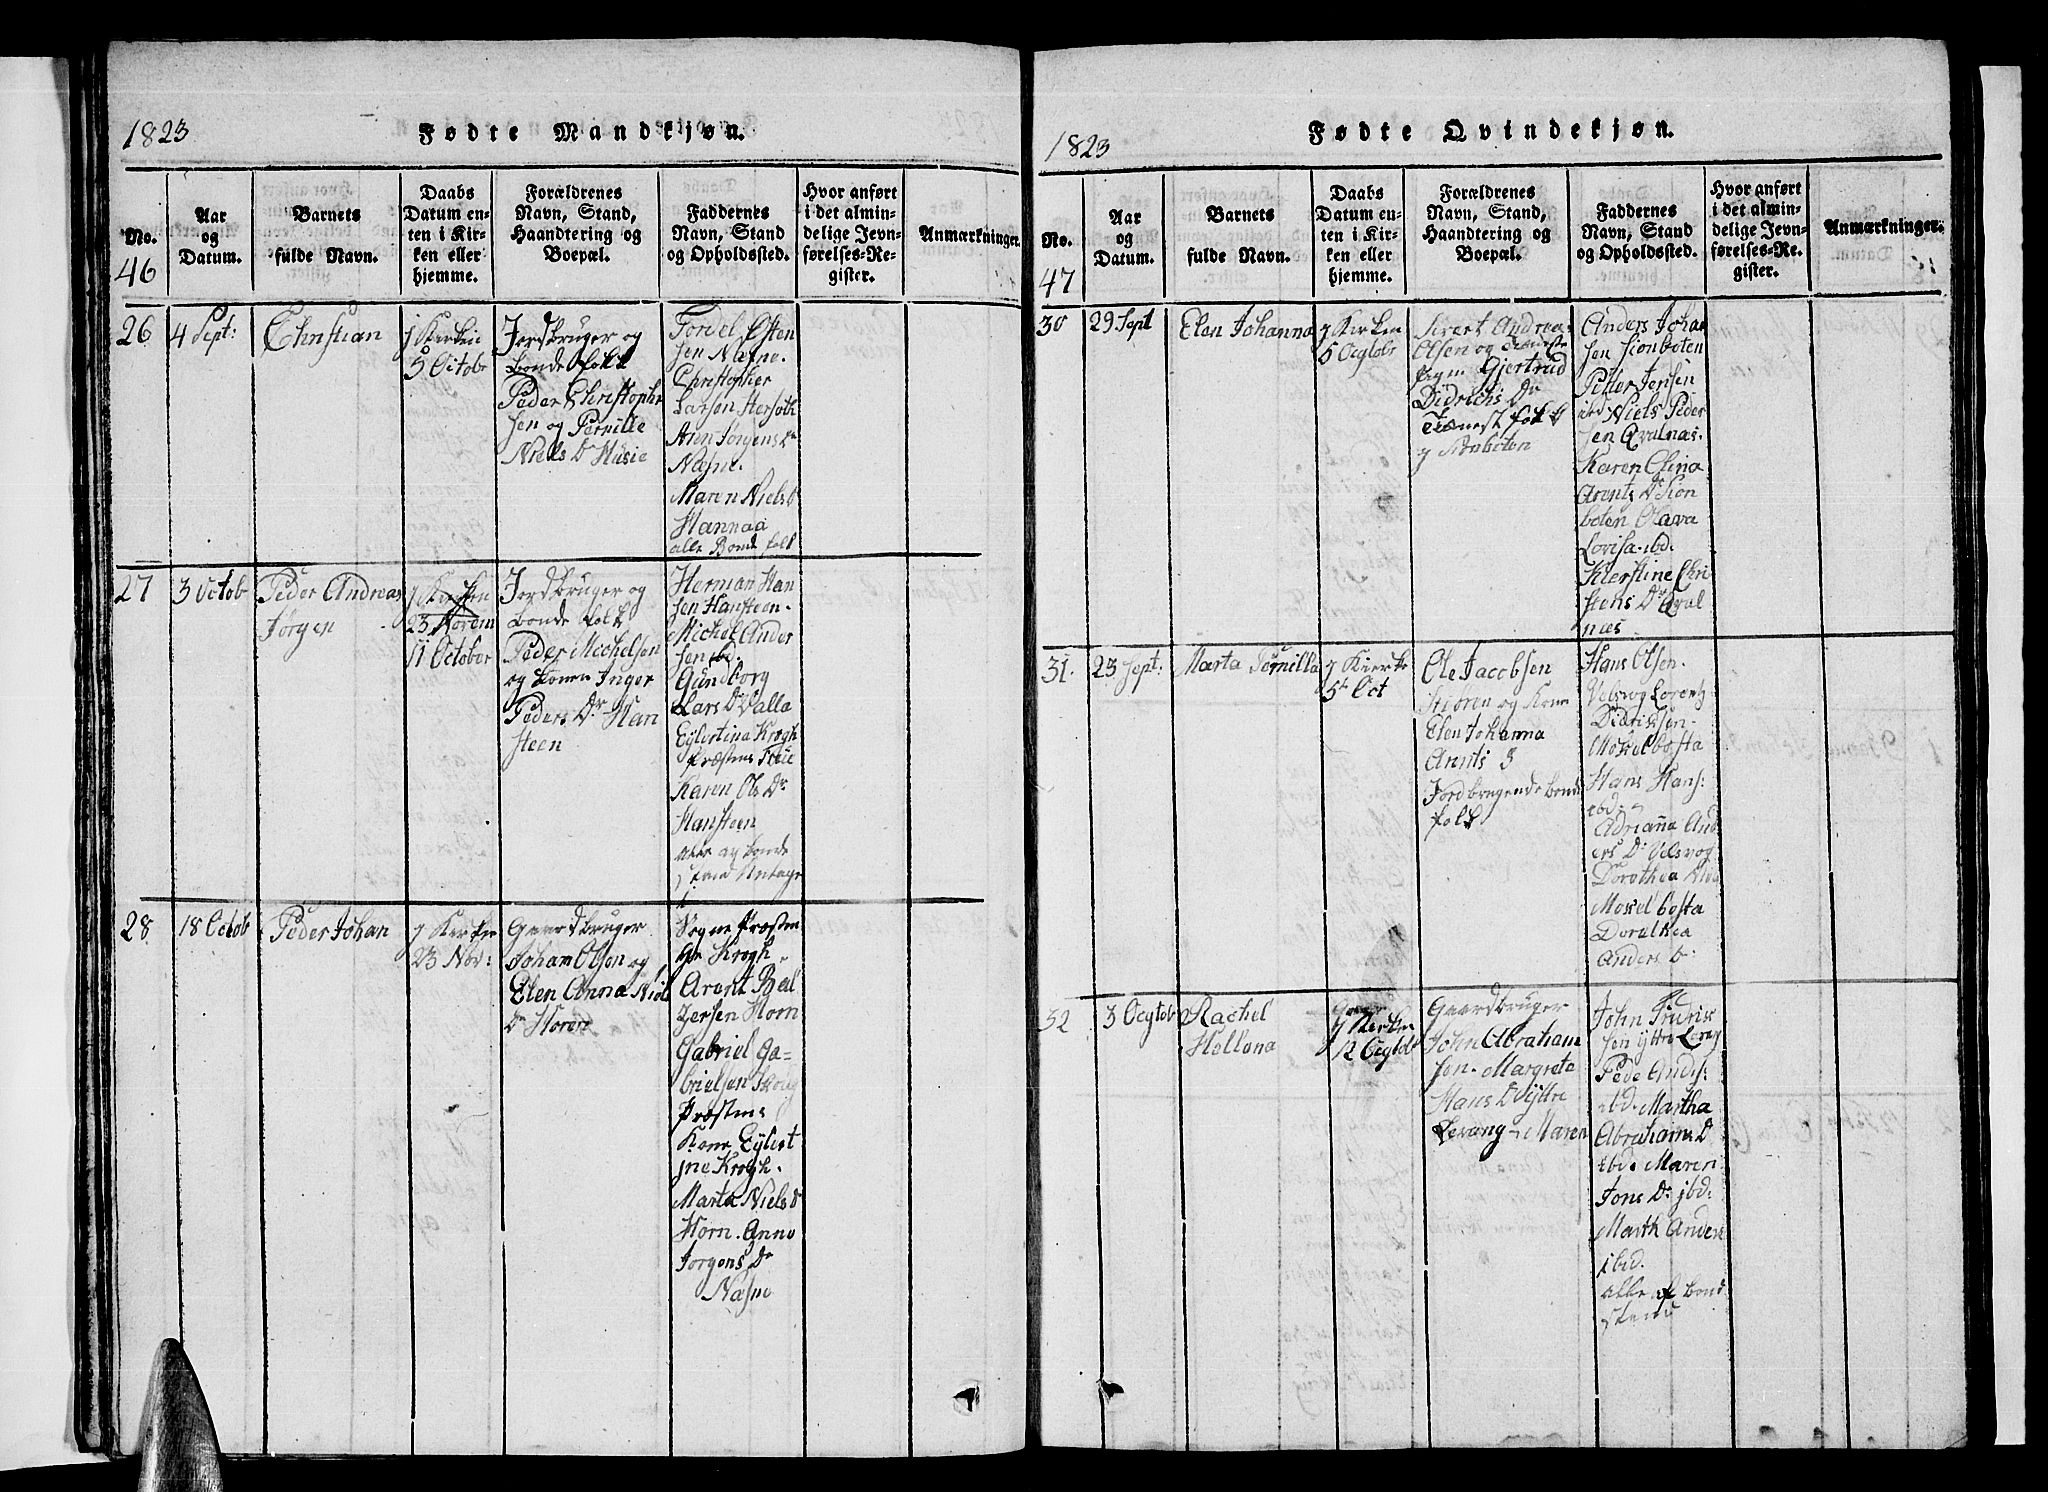 1823
Fødte Mandkjøn.
No.
46
Aar
og
Datum.
Barnets
fulde Navn.
Daabs
Datum en-
ten i Kir-
ken eller
hjemme.
Forældrenes
Navn, Stand,
Haandtering og
Boepæl.
Faddernes
Navn, Stand
og Opholdssted.
Hvor anført
i det almin-
delige Jevn-
førelses-Re-
gister.
Anmærkninger.
26
4 Sept:
Christian
J Kirken
5 Octobr
Jordbruger og
bonde folk
Peder Christopher
sen og Pernille
Niels Dr Husie
Tordel Osten
sen Næsne.
Christopher
Larsen
Jørgens Dr
Næsne.
Maren Niels D
Hannaa
alle Bonde folk
27
3 Octob
Peder Andreas
Jørgen
J Kirken
23 Novem
11 October
Jordbruger og
bonde folk
Peder Mechelsen
og konen Inger
Peders Dr Han
steen
Herman Han
sen Hansteen.
Michel Ander
sen ibd.
Gundborg
Lars Dr Valla
Eylertina Krogh
Præstens Frue
Karen Ols Dr
Hansteen
alle af bonde
28
18 Octob
Peder Johan
J Kirken
23 Nov:
Gaardbruger
Johan Olsen og
Elen Anna Niels
Dr Horen
Sogne Præsten
Hr Krogh.
Arent Bal
zersen Horn
Gabriel Ga-
brielsen
Præstens
Kone Eylert
ine Krogh.
Marta Niels D
Horn. Anne
Jorgens Dr
Næsne
1823
Fødte Qvindekjøn.
No.
47
Aar
og
Datum.
Barnets
fulde Navn.
Daabs
Datum en-
ten i Kir-
ken eller
hjemme.
Forældrenes
Navn, Stand,
Haandtering og
Boepæl.
Faddernes
Navn, Stand
og Opholdssted.
Hvor anført
i det almin-
delige Jevn-
førelses-Re-
gister.
Anmærkninger.
30
29 Sept
Elen Johanna
J Kirken
5 Octobr
Sivert Andreas
Olsen og Tieneste
Gjertrud
Didrichs Dr
Tienest folk
Anders Johan
sen Sionboten
Peder Jensen
ibd. Niels Peder
sen Qvalnæs.
Karen Elina
Arents Dr Sion
boten Olava
Lovisa. ibd.
Kierstine Chri
stens Dr Qval
næs
31.
23 Sept:
Marta Pernilla
J Kierke
5te Oct
Ole Jacobsen
og Kone
Elen Johanna
Arnts D
Jordbrugende bonde
folk
Hans Olsen.
Velsvog Lorentz
Didrikssen.
Moxelbosta
Hans Hans:
ibd.
Adrianna And
ers Dr Velsvog
Dorothea
Moxelbosta
Dorothea
Anders D.
32
3 Octob
Rachel
Hellena
J Kierken
12 Octobr
Gaardbruger
John Abraham
sen. Margrete
Hans D Yttre
Levang Maren
John Fridrix
sen Yttre Levang
Pede Anders:
ibd. Martha
Abrahams D
ibd. Maren
Jons Dr ibd:
Marth Anders
ibd.
alle af bonde
stand